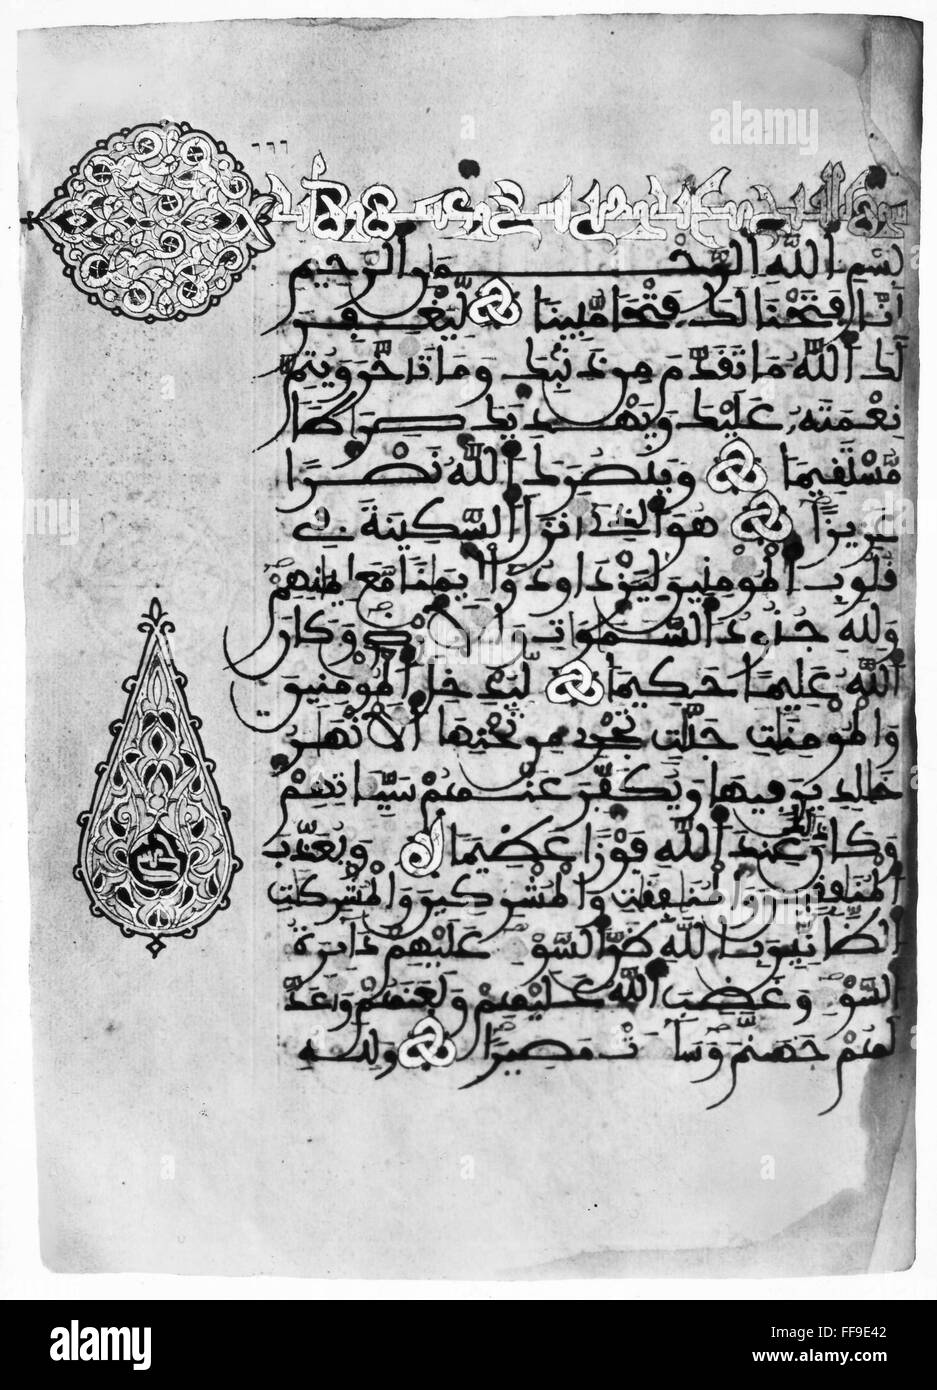 بسم الله الرحمن الرحيم
انا فتحنا لك فتحا مبينا ليغفر
لك الله ما تقدم من ذنبك وما تاخر ويتم
نعمته عليك ويهديك صراطا
مستقيما وينصرك الله نصرا
عزيزا هو الذي انزل السكينة في
قلوب المومنين ليزدادوا ايمانا مع ايمنهم
ولله جنود السموات والارض وكان
الله عليما حكيما ليدخل المومنين
والمومنات جنات تجري من تحتها الانهار
خالدين فيها ويكفر عنهم سيئاتهم
وكان ذلك عند الله فوزا عظيما ويعذب
المنافقين والمنافقات والمشركين والمشركات
الظانين بالله ظن السوء عليهم دائرة
السوء وغضب الله عليهم ولعنهم واعد
لهم جهنم وساءت مصيرا ولله
alamy
Image ID: FF9E42
www.alamy.com